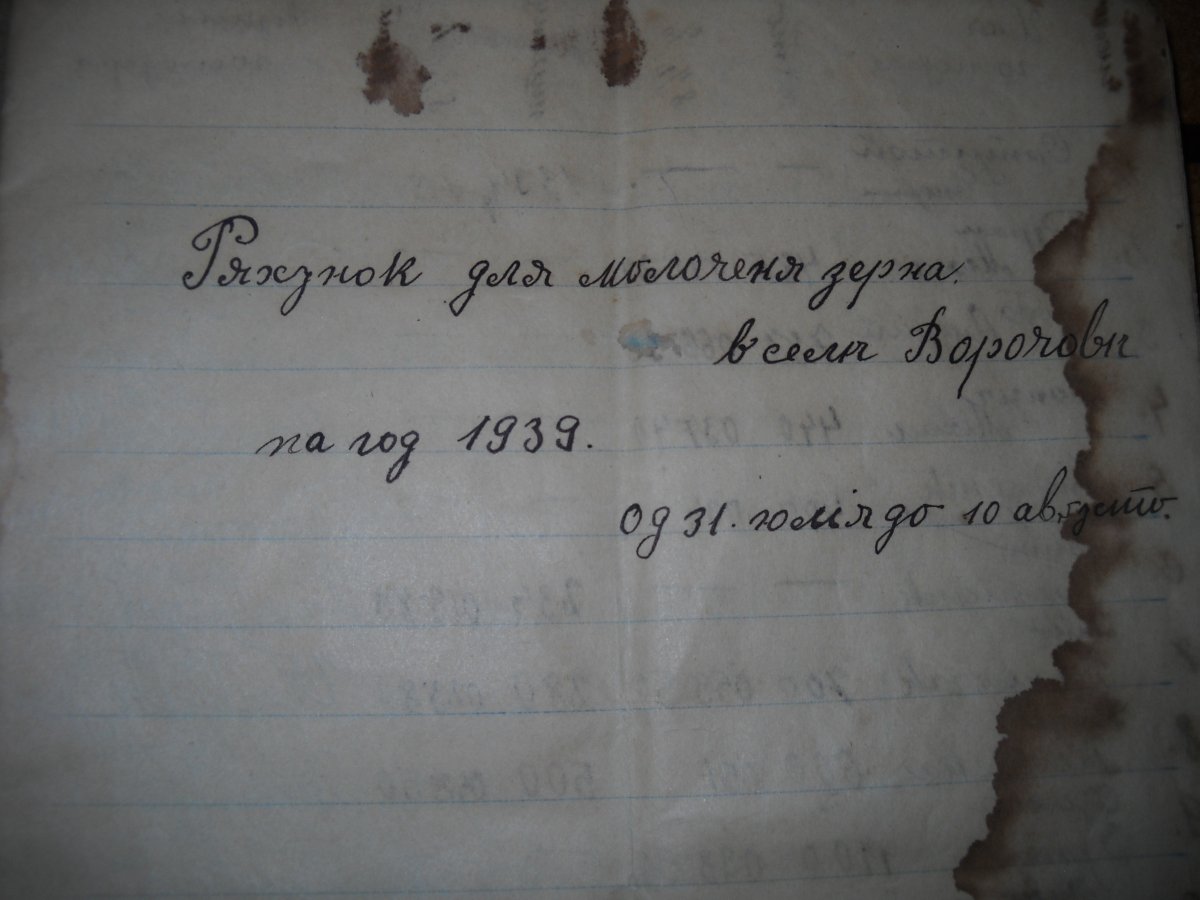 Ряхунок для молоченя зерна.
в селѣ Ворочовѣ
на год 1939.
Од 31. юлія до 10 августо.